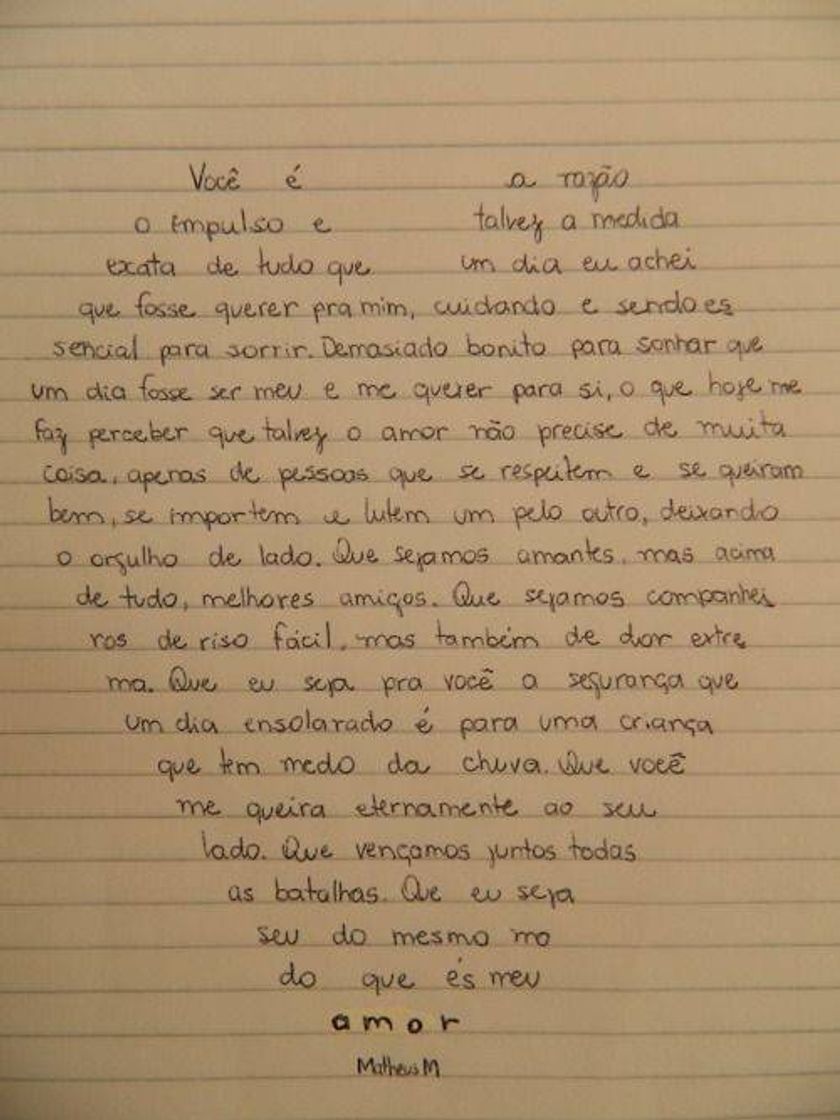 Você é a razão
o impulso e talvez a medida
exata de tudo que um dia eu achei
que fosse querer pra mim, cuidando e sendo es
sencial para sorrir. Demasiado bonito para sonhar que
um dia fosse ser meu e me querer para si, o que hoje me
faz perceber que talvez o amor não precise de muita
coisa, apenas de pessoas que se respeitem e se queiram
bem, se importem e lutem um pelo outro, deixando
o orgulho de lado. Que sejamos amantes, mas acima
de tudo, melhores amigos. Que sejamos companhei
ros de riso fácil, mas também de dor extre
ma. Que eu seja pra você a segurança que
um dia ensolarado é para uma criança
que tem medo da chuva. Que você
me queira eternamente ao seu
lado. Que vençamos juntos todas
as batalhas. Que eu seja
seu do mesmo mo
do que és meu
amor
Matheus M